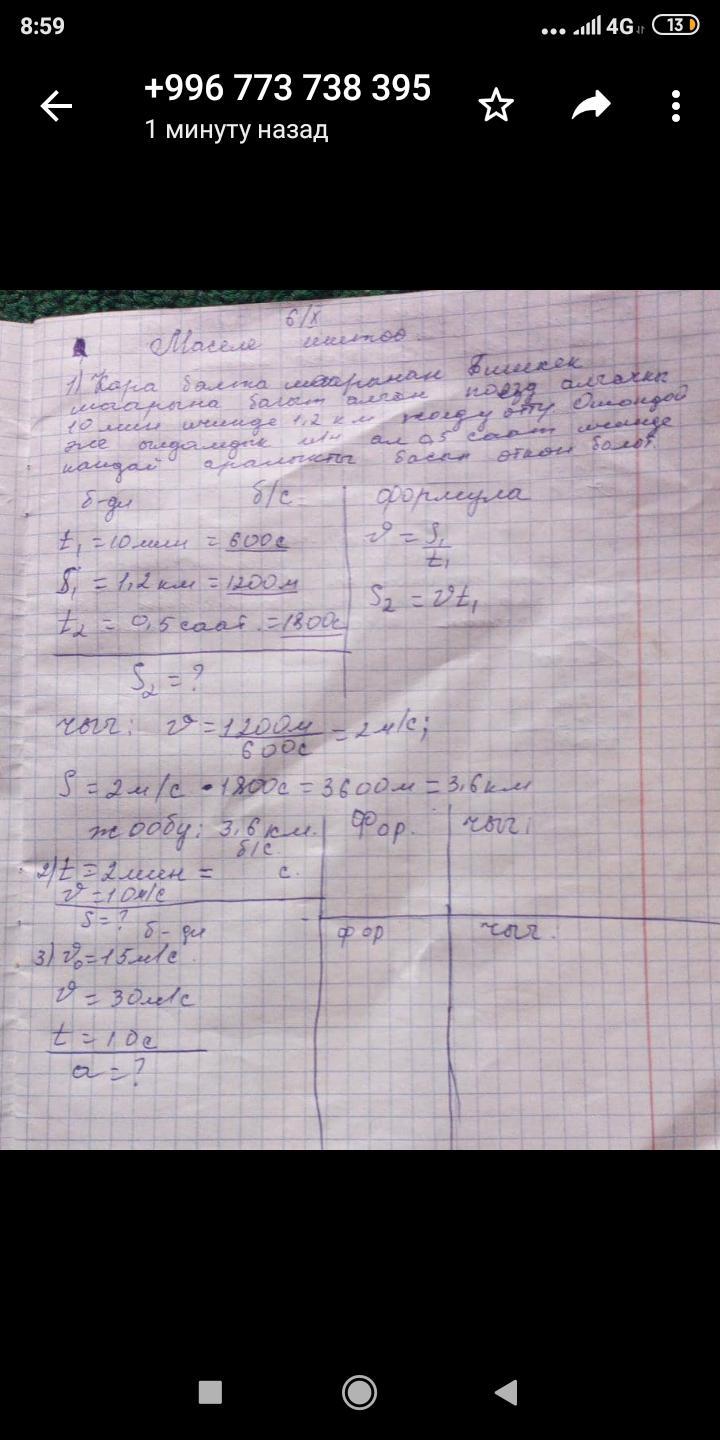 8:59
4G
13
+996 773 738 395
1 минуту назад
6/X
Маселе иштөө.
1) Кара балта шаарынан Бишкек
шаарына багыт алган поезд алгачкы
10 мин ичинде 1,2 км жолду өттү. Ошондой
эле ылдамдык м/н ал 0,5 саат ичинде
кандай аралыкты басып өткөн болот.
б-ди б/с формула
t₁ = 10 мин = 600с ϑ = S₁/t₁
S₁ = 1,2 км = 1200м S₂ = ϑt₁
t₂ = 0,5 саат. = 1800с
S₂ = ?
чыг: ϑ = 1200м/600с = 2 м/с;
S = 2м/с • 1800с = 3600м = 3,6 км
жообу: 3,6 км. Фор. чыг:
б/с
2) t = 2 мин = с.
ϑ = 10м/с
S = ?
б-ди фор чыг.
3) ϑ₀ = 15м/с.
ϑ = 30м/с
t = 10с
a = ?